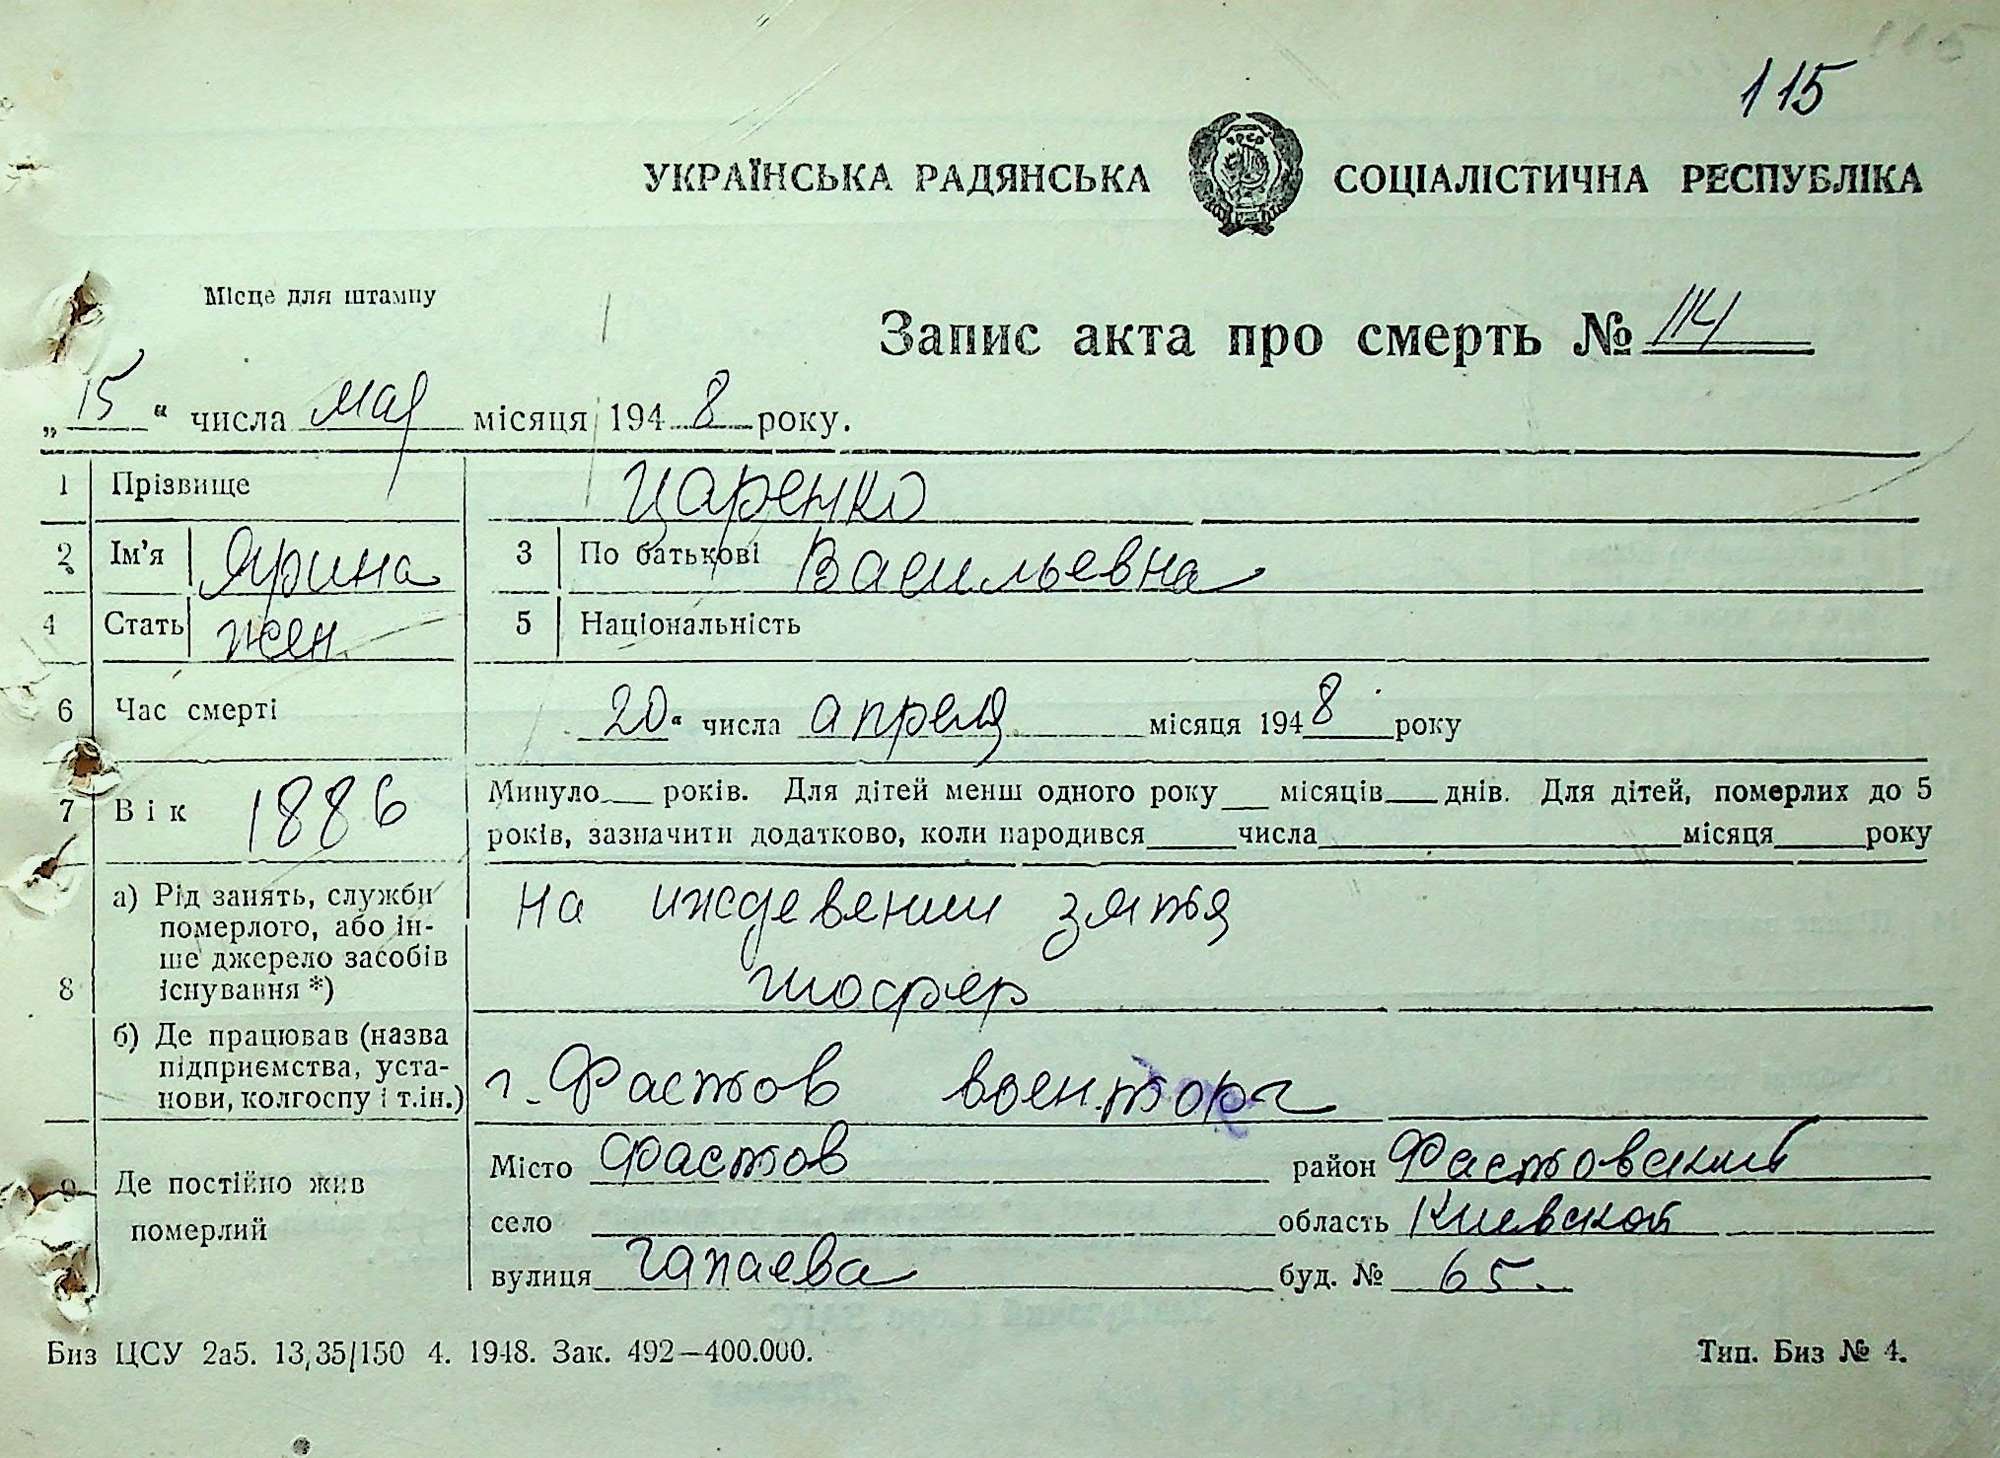 115
УКРАЇНСЬКА РАДЯНСЬКА СОЦІАЛІСТИЧНА РЕСПУБЛІКА
Місце для штампу
Запис акта про смерть № 114
„15“ числа мая місяця 1948 року.
1 Прізвище Царенко
2 Ім’я Ярина 3 По батькові Васильевна
4 Стать жен. 5 Національність
6 Час смерті 20“ числа апреля місяця 1948 року
7 Вік 1886 Минуло___ років. Для дітей менш одного року___ місяців___ днів. Для дітей, померлих до 5
років, зазначити додатково, коли народився___числа___місяця___року
8 а) Рід занять, служби
померлого, або ін-
ше джерело засобів
існування *)
на иждевении зятя
шофер
б) Де працював (назва
підприємства, уста-
нови, колгоспу і т.ін.)
г. Фастов военторг
9 Де постійно жив
померлий
Місто Фастов район Фастовский
село область Киевской
вулиця Чапаева буд. № 65.
Биз ЦСУ 2а5. 13,35/150 4. 1948. Зак. 492—400.000. Тип. Биз № 4.